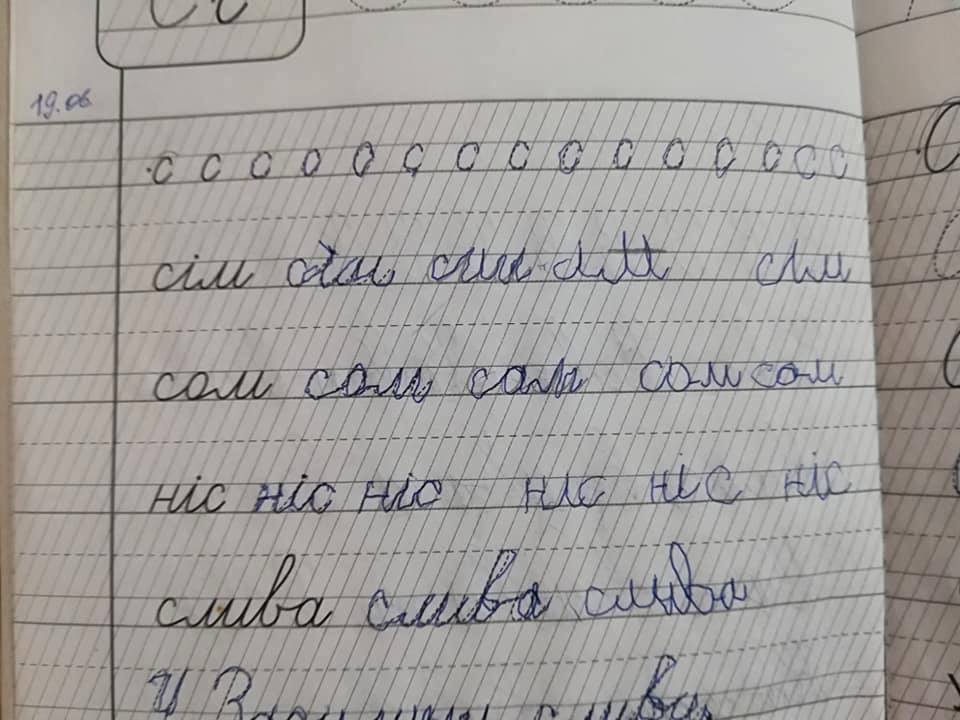 Сс
19.06
с с с с с с с с с с с с с с с
сім сім сім сім
сом сом сом сом сом
ніс ніс ніс ніс ніс ніс
слива слива слива
У